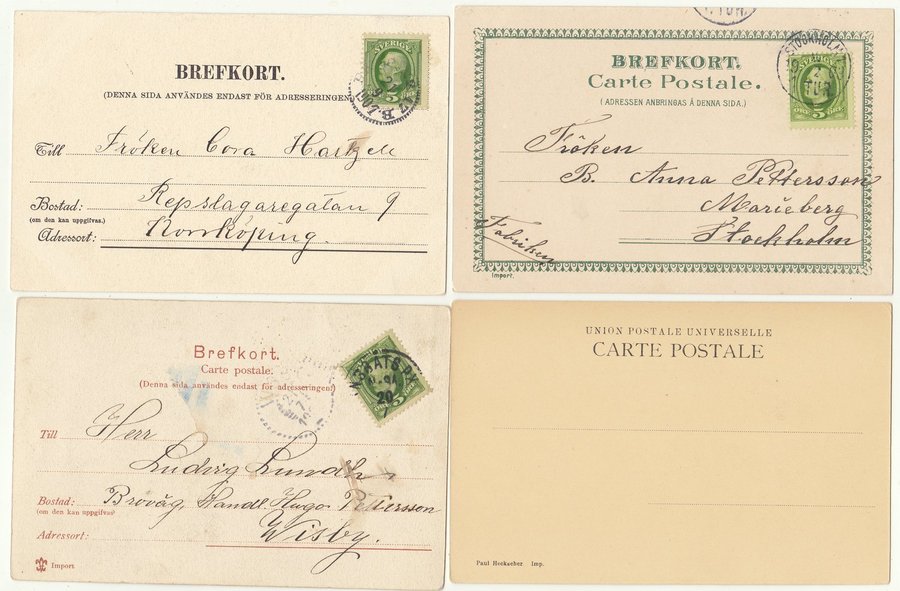 BREFKORT.
(DENNA SIDA ANVÄNDES ENDAST FÖR ADRESSERINGEN)
SVERIGE
5
1902
Till Fröken Cora Hartzell
Bostad: Repslagaregatan 9
(om den kan uppgifvas.)
Adressort: Norrköping.
BREFKORT.
Carte Postale.
(ADRESSEN ANBRINGAS Å DENNA SIDA.)
STOCKHOLM
TUR
5
Fröken
B. Anna Pettersson
Marieberg
Stockholm
Fabriken
Import.
Brefkort.
Carte postale.
(Denna sida användes endast för adresseringen)
20
Till Herr
Ludvig Lundh
Bostad: Brovåg, Handl. Hugo Pettersson
(om den kan uppgifvas)
Adressort: Wisby.
Import
UNION POSTALE UNIVERSELLE
CARTE POSTALE
Paul Heckscher Imp.